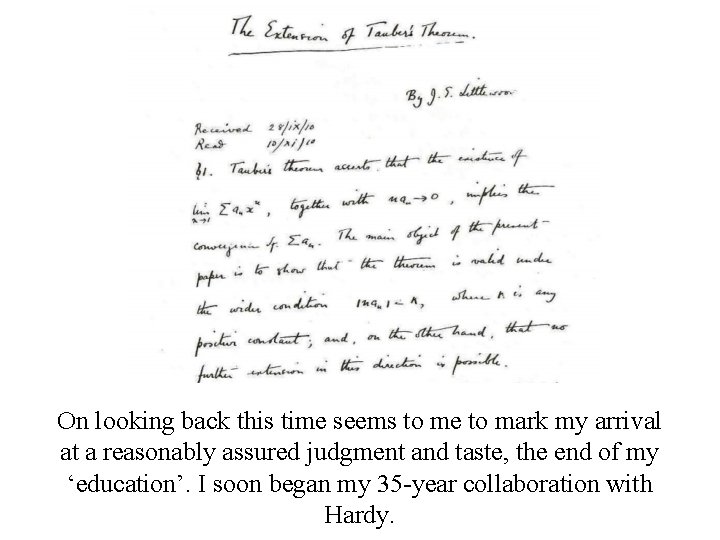 The Extension of Tauber's Theorem.
By J. E. Littlewood
Received 28/ix/10
Read 10/xi/10
§1. Tauber's theorem asserts that the existence of
lim Σ aₙxⁿ, together with naₙ→0, implies the
x→1
convergence of Σaₙ. The main object of the present
paper is to show that the theorem is valid under
the wider condition |naₙ| < K, where K is any
positive constant; and, on the other hand, that no
further extension in this direction is possible.
On looking back this time seems to me to mark my arrival
at a reasonably assured judgment and taste, the end of my
‘education’. I soon began my 35-year collaboration with
Hardy.